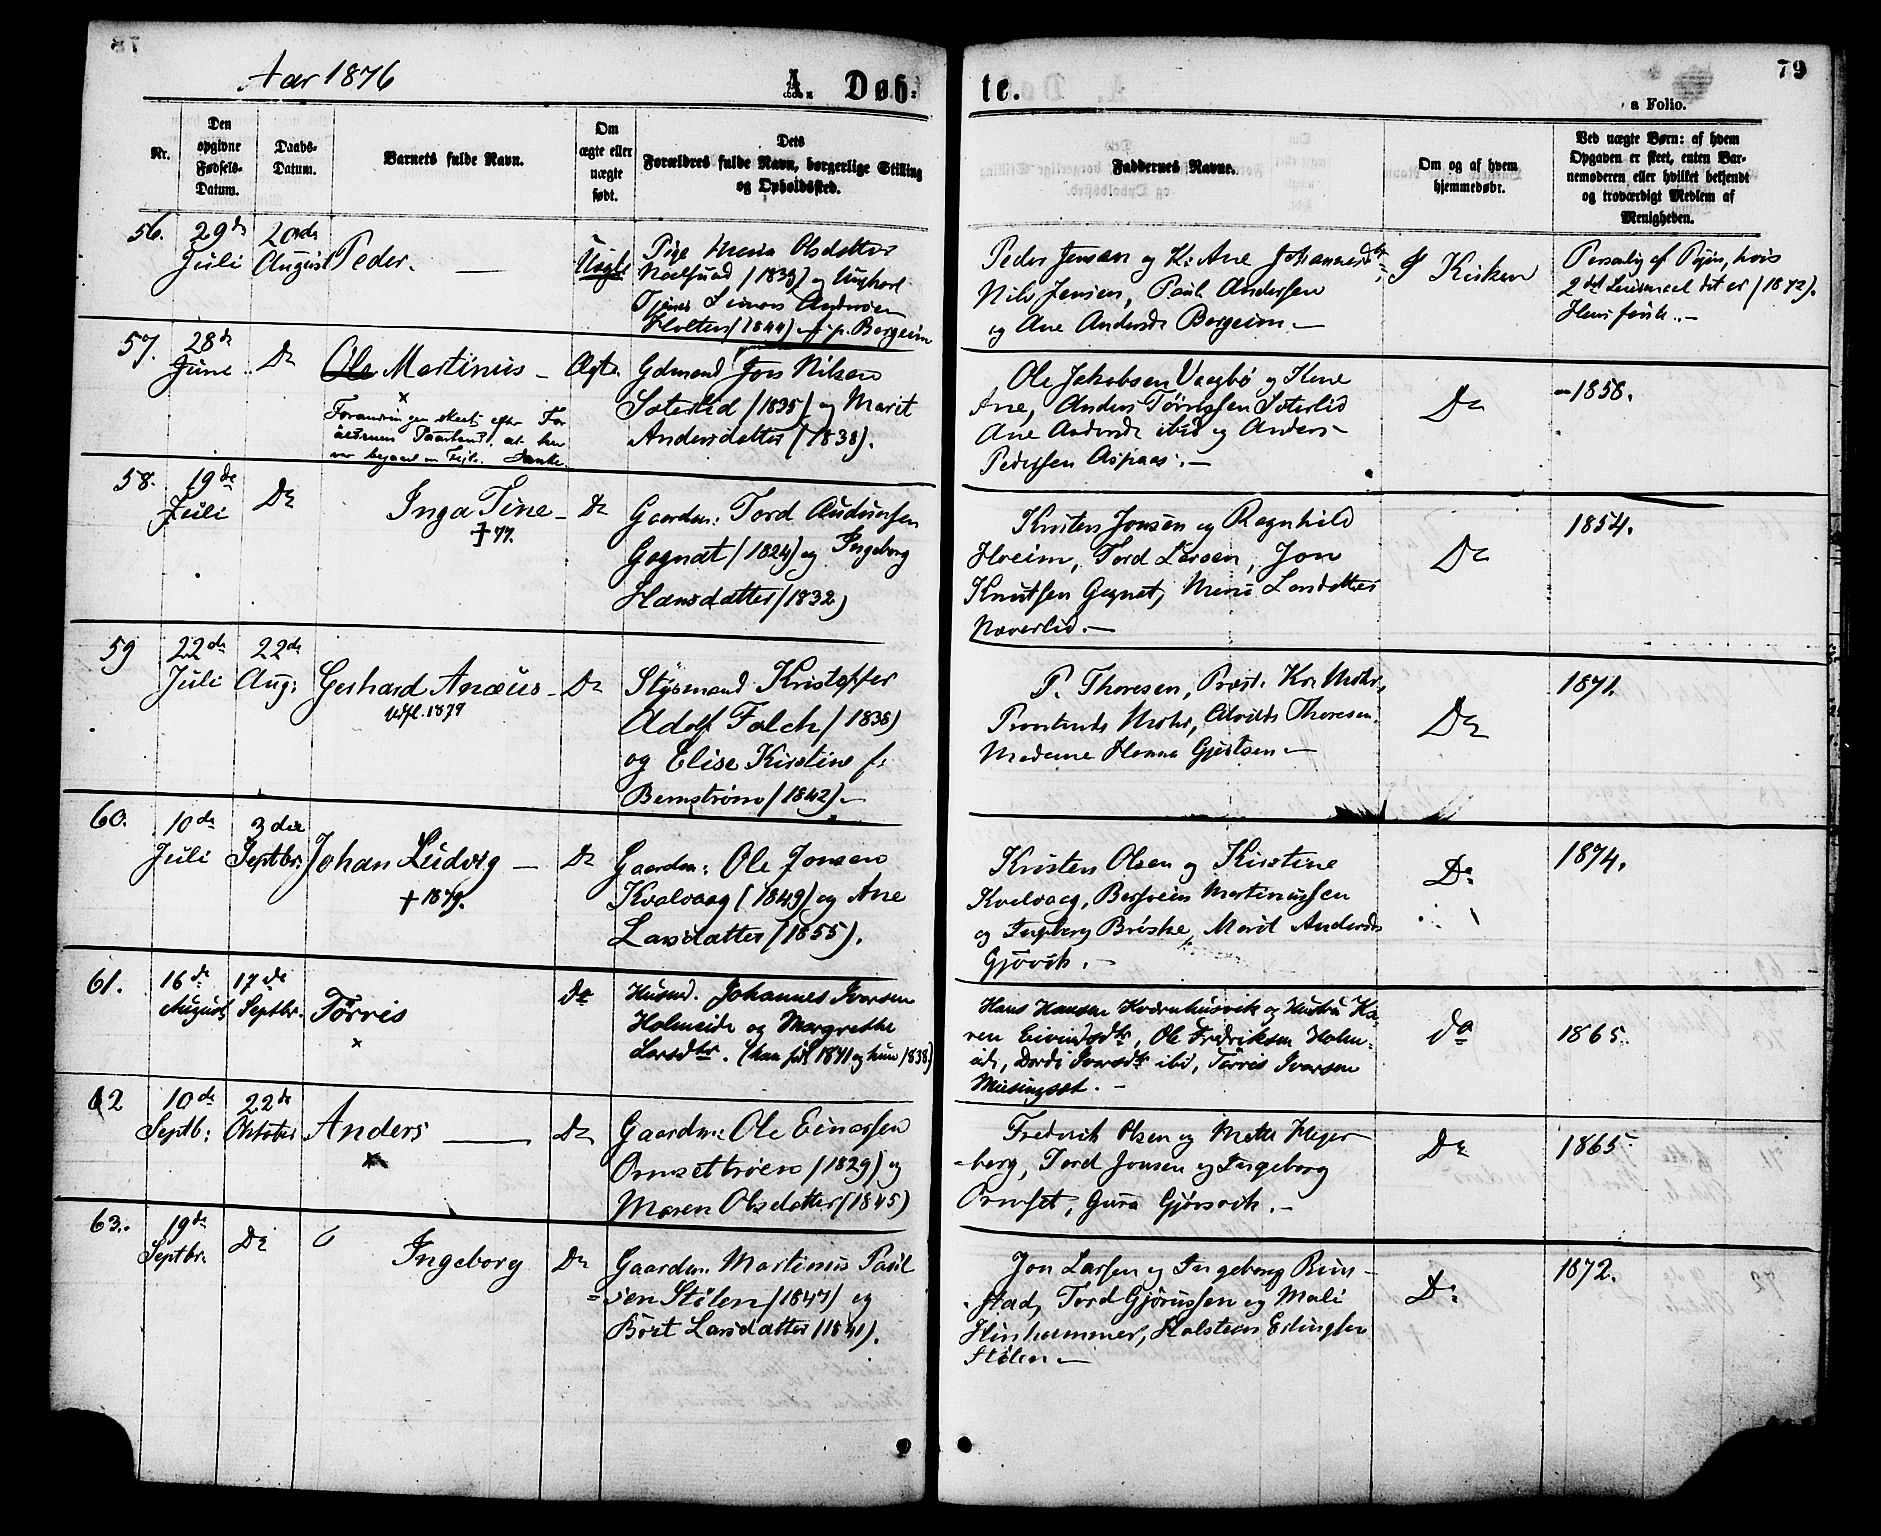 Aar 1876
A. Døb-
te.
79
a Folio.
Nr.
Den
opgivne
Fødsels-
Datum.
Daabs-
Datum.
Barnets fulde Navn.
Om
ægte eller
uægte
født.
Dets
Forældres fulde Navn, borgerlige Stilling
og Opholdssted.
Faddernes Navne.
Om og af hvem
hjemmedøbt.
Ved uægte Børn: af hvem
Opgaven er skeet, enten Bar-
nemoderen eller hvilket bekjendt
og troværdigt Medlem af
Menigheden.
56.
29de
Juli
20nde
August
Peder. —
Uægte
Pige Olsdatter
(1839) og Ungkarl
Simon Andersen
Holten (1844) Borgeim
Peder Jensen og K: Ane
Nils Jensen, Paul Andersen
og Ane Andersd. Borgeim —
I Kirken
af Pigen, hvis
2det det er (1872).
57.
28de
June
Do
Ole Martinus —
x
Forandringen skeet efter For
ældrenes Paastand, at her
var begaaet en Fejl.
Ægte
Gdmand Jon Nilsen
Sæterlid (1835) og Marit
Andersdatter (1838).
Ole Jakobsen Vaagbø og Kone
Ane, Anders Sæterlid
Ane Andersd. ibid og Anders
Pedersen Aspaas. —
Do
— 1858.
58.
19de
Juli
Do
Inga Tine —
† 77.
Do
Gaardm: Tord Audunsen
Gagnat (1824) og Ingeborg
Hansdatter (1832)
Knut Jonsen og Ragnhild
Hoeim, Tord Larsen, Jon
Knutsen Gagnat, Larsdatter
Naverlid. —
Do
1854.
59
22de
Juli
22de
Aug:
Gerhard Anæus —
Udfl. 1879
Do
Styrmand Kristoffer
Adolf Falch (1838)
og Elise Kirstine f.
Bernstrøm (1842). —
P. Thoresen, Præst. Kr. Mohr,
Mohr, Thoresen,
Madame Hanna Gjertsen —
Do
1871.
60.
10de
Juli
3die
Septbr:
Johan Ludvig —
† 1879.
Do
Gaardm: Ole Jonsen
Kvalvaag (1849) og Ane
Larsdatter (1855).
Kristen Olsen og Kirstine
Kvalvaag, Martinussen
og Ingeborg Brøske, Marit Andersd.
Gjøvik. —
Do
1874.
61.
16de
August
17de
Septbr.
Tørris
x
do
Husmd. Johannes Ivarsen
Holmeide og Margrethe
Larsdtr. (han født 1841 og hun 1838)
Hans Hansen Kvernhusvik og Hustru Ka-
ren Eivindsdtr, Ole Fredriksen Holm-
eide, Dordi Ivarsdtr ibid, Tørris Ivarsen
Meisingset. —
do
1865.
62
10de
Septb:
22de
Oktober
Anders —
x
Do
Gaardm: Ole Einarsen
Ormsettrøen (1829) og
Maren Olsdatter (1845)
Frederik Olsen og Mette Mejer-
berg, Tord Jonsen og Ingeborg
Ormset, Gura Gjørsvik. —
Do
1865.
63.
19de
Septbr.
Do
Ingeborg
Do
Gaardm. Martinus Paul
sen Stølen (1847) og
Børet Larsdatter (1841).
Jon Larsen og Ingeborg Rim-
stad, Tord Gjørussen og Mali
Hinhammer, Halstein Erlingsen
Stølen —
Do
1872.